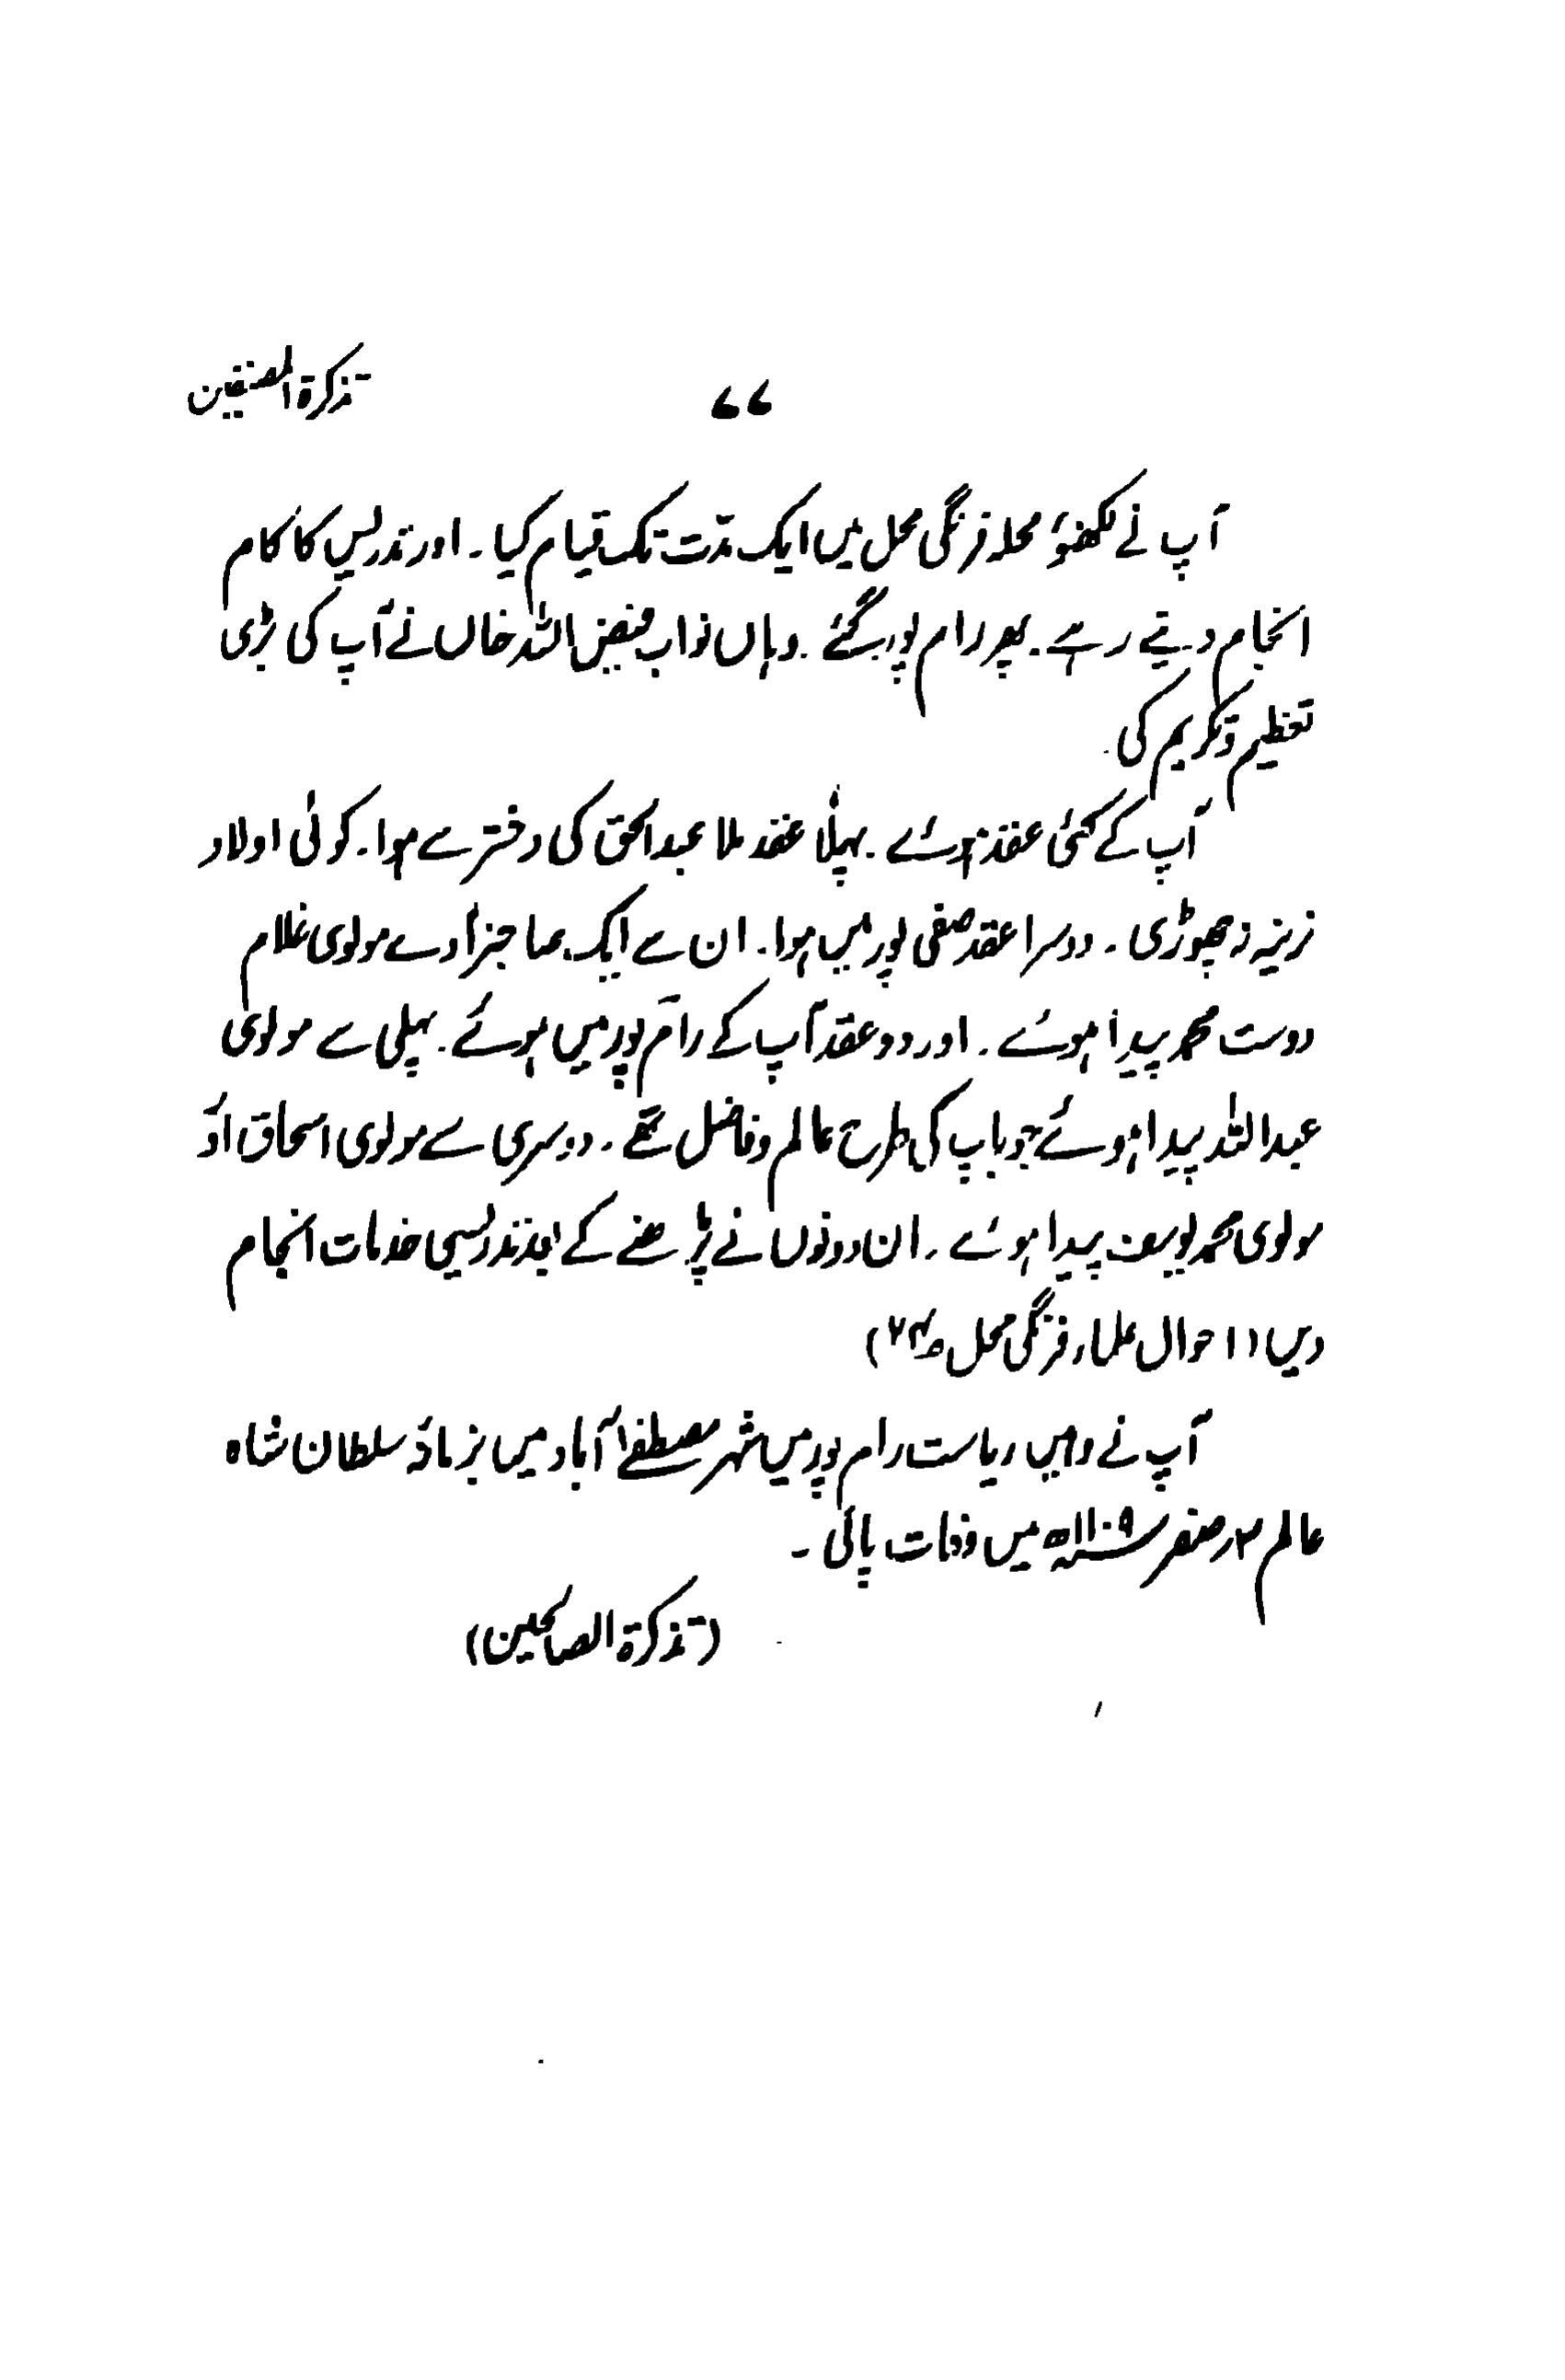 تذکرۃ المصنفین
۷۷
آپ نے لکھنؤ محلہ فرنگی محل میں ایک مدّت تک قیام کیا۔ اور تدریس کا کام
انجام دیتے رہے۔ پھر رام پور گئے۔ وہاں نواب فیض اللہ خاں نے آپ کی بڑی
تعظیم و تکریم کی۔
آپ کے کئی عقد ہوئے۔ پہلا عقد ملا عبدالحق کی دختر سے ہوا۔ کوئی اولاد
نرینہ نہ چھوڑی۔ دوسرا عقد صفی پور میں ہوا۔ ان سے ایک صاحبزادے مولوی غلام
دوست محمد پیدا ہوئے۔ اور دو عقد آپ کے رام پور میں ہوئے۔ پہلی سے مولوی
عبداللہ پیدا ہوئے جو باپ کی طرح عالم و فاضل تھے۔ دوسری سے مولوی اسحاق اور
مولوی محمد یوسف پیدا ہوئے۔ ان دونوں نے پڑھنے کے بعد تدریسی خدمات انجام
دیں (احوال علماء فرنگی محل ص۲۴)
آپ نے وہیں ریاست رام پور میں شہر مصطفےٰ آباد میں بزمانۂ سلطان شاہ
عالم ۳ر صفر میں وفات پائی۔
(تذکرۃ الصالحین)